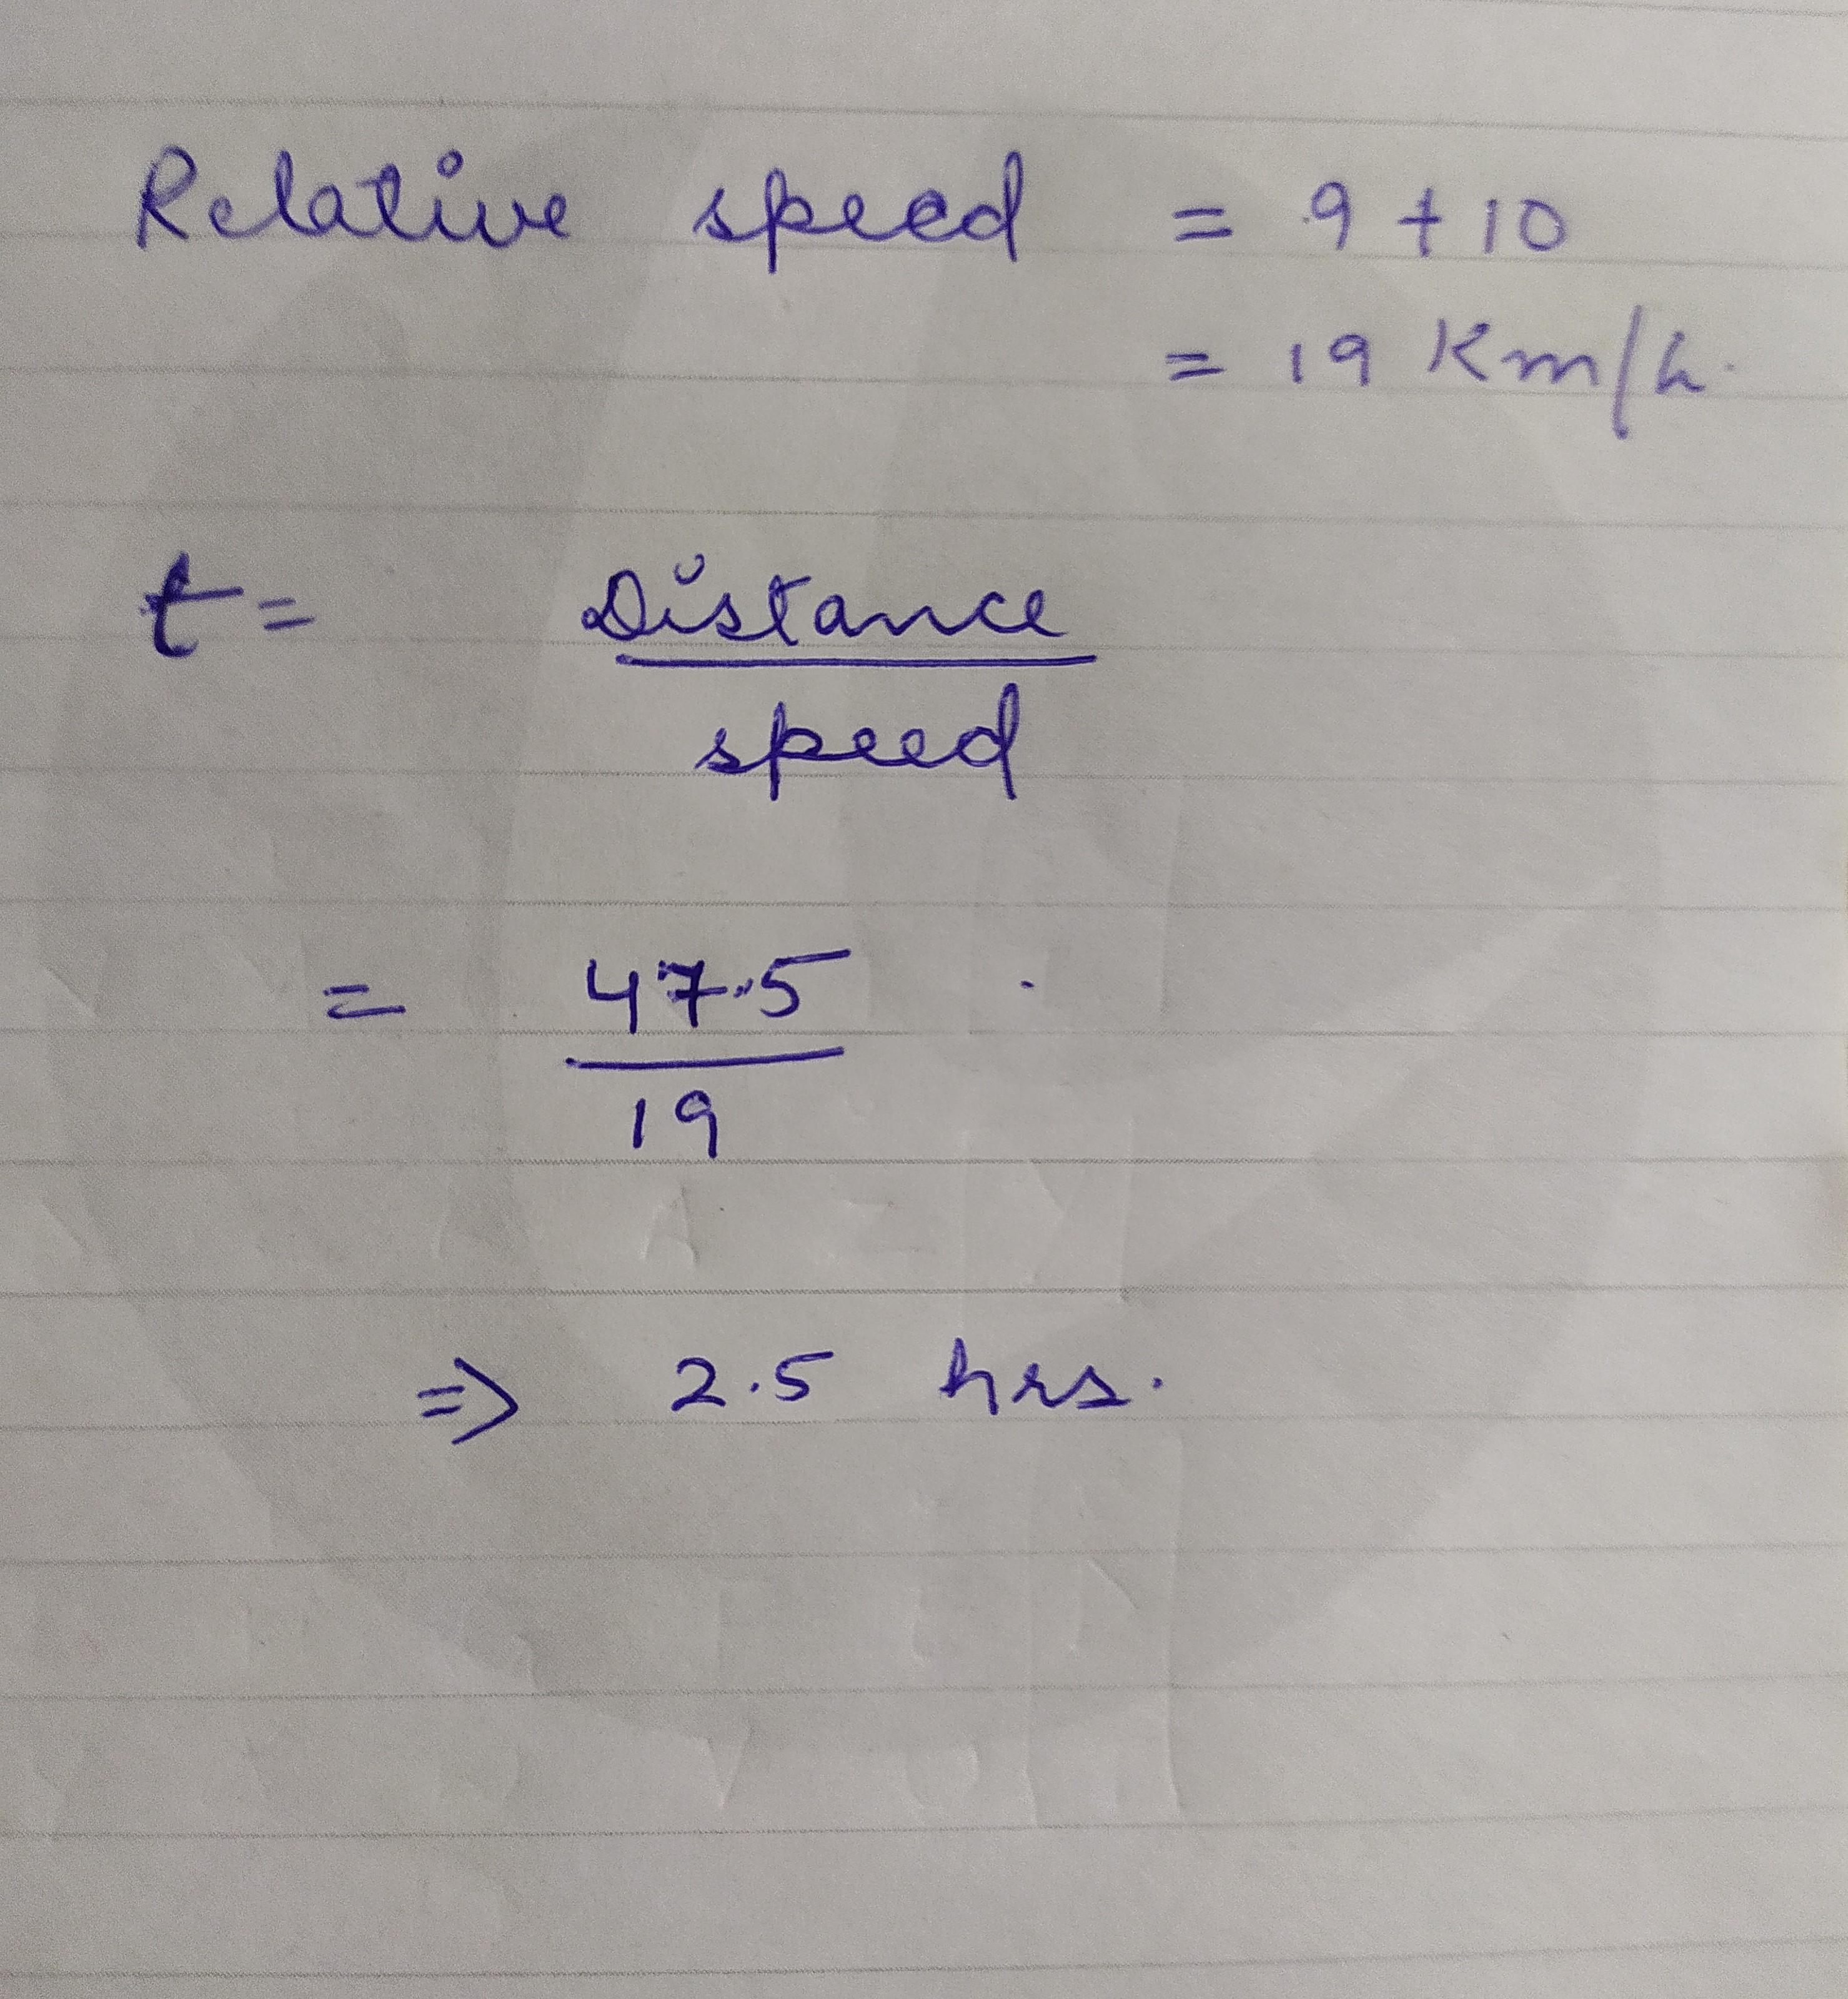 Relative speed = 9 + 10
= 19 Km/h.
t = Distance
speed
= 47.5
19
⇒ 2.5 hrs.